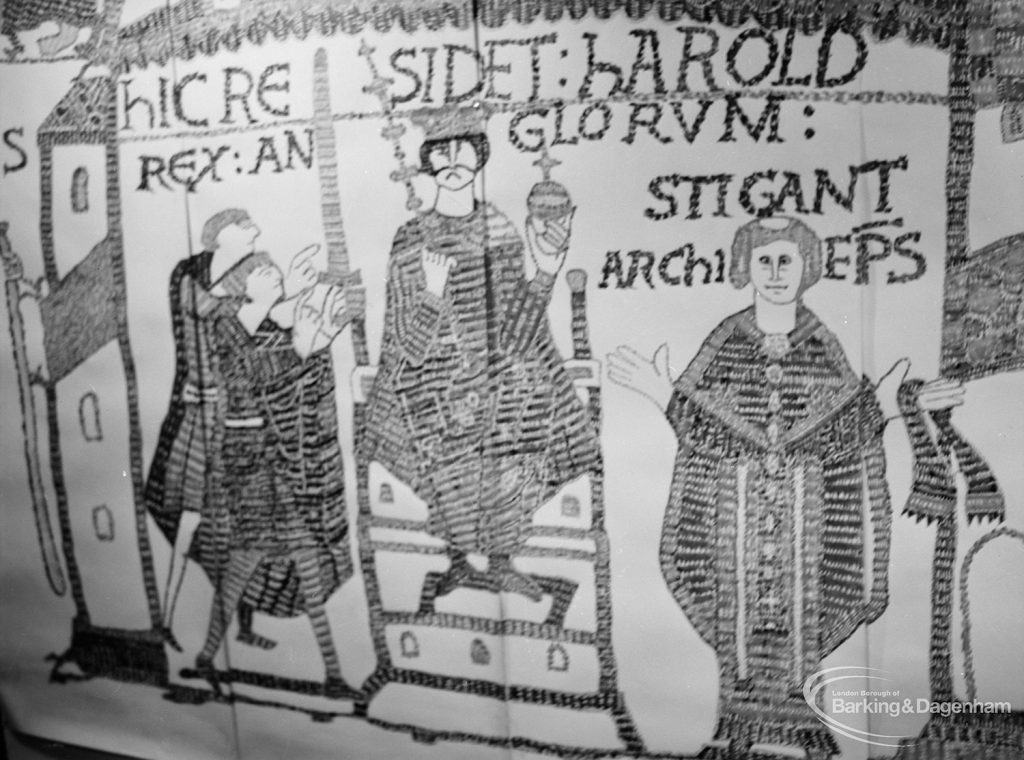 hIC RE SIDET: hAROLD
S REX: AN GLORVM:
STIGANT
ARChI EPS
London Borough of
Barking&Dagenham